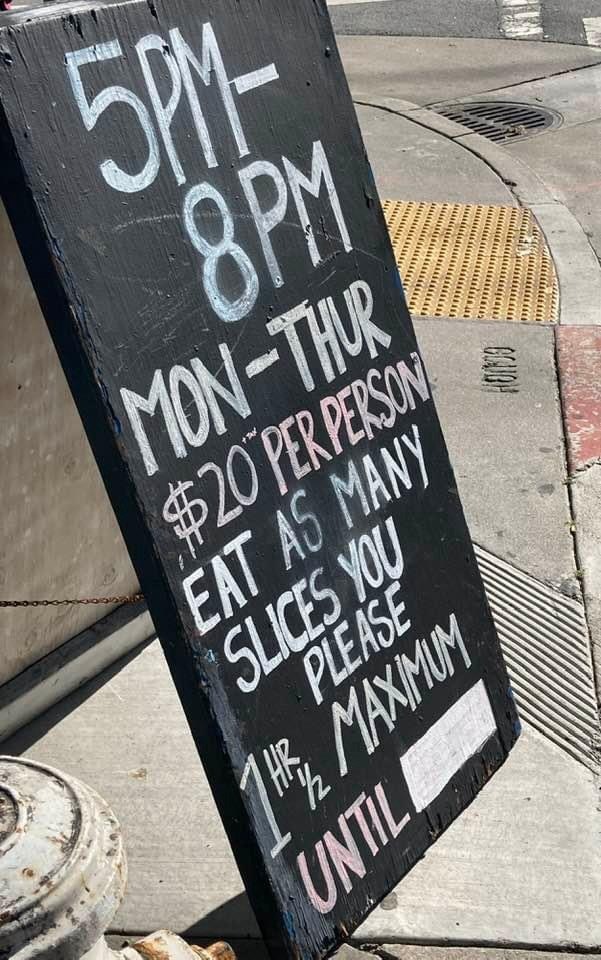 5PM-
8PM
MON-THUR
$20 +TAX PER PERSON
EAT AS MANY
SLICES YOU
PLEASE
1 HR 1/2 MAXIMUM
UNTIL